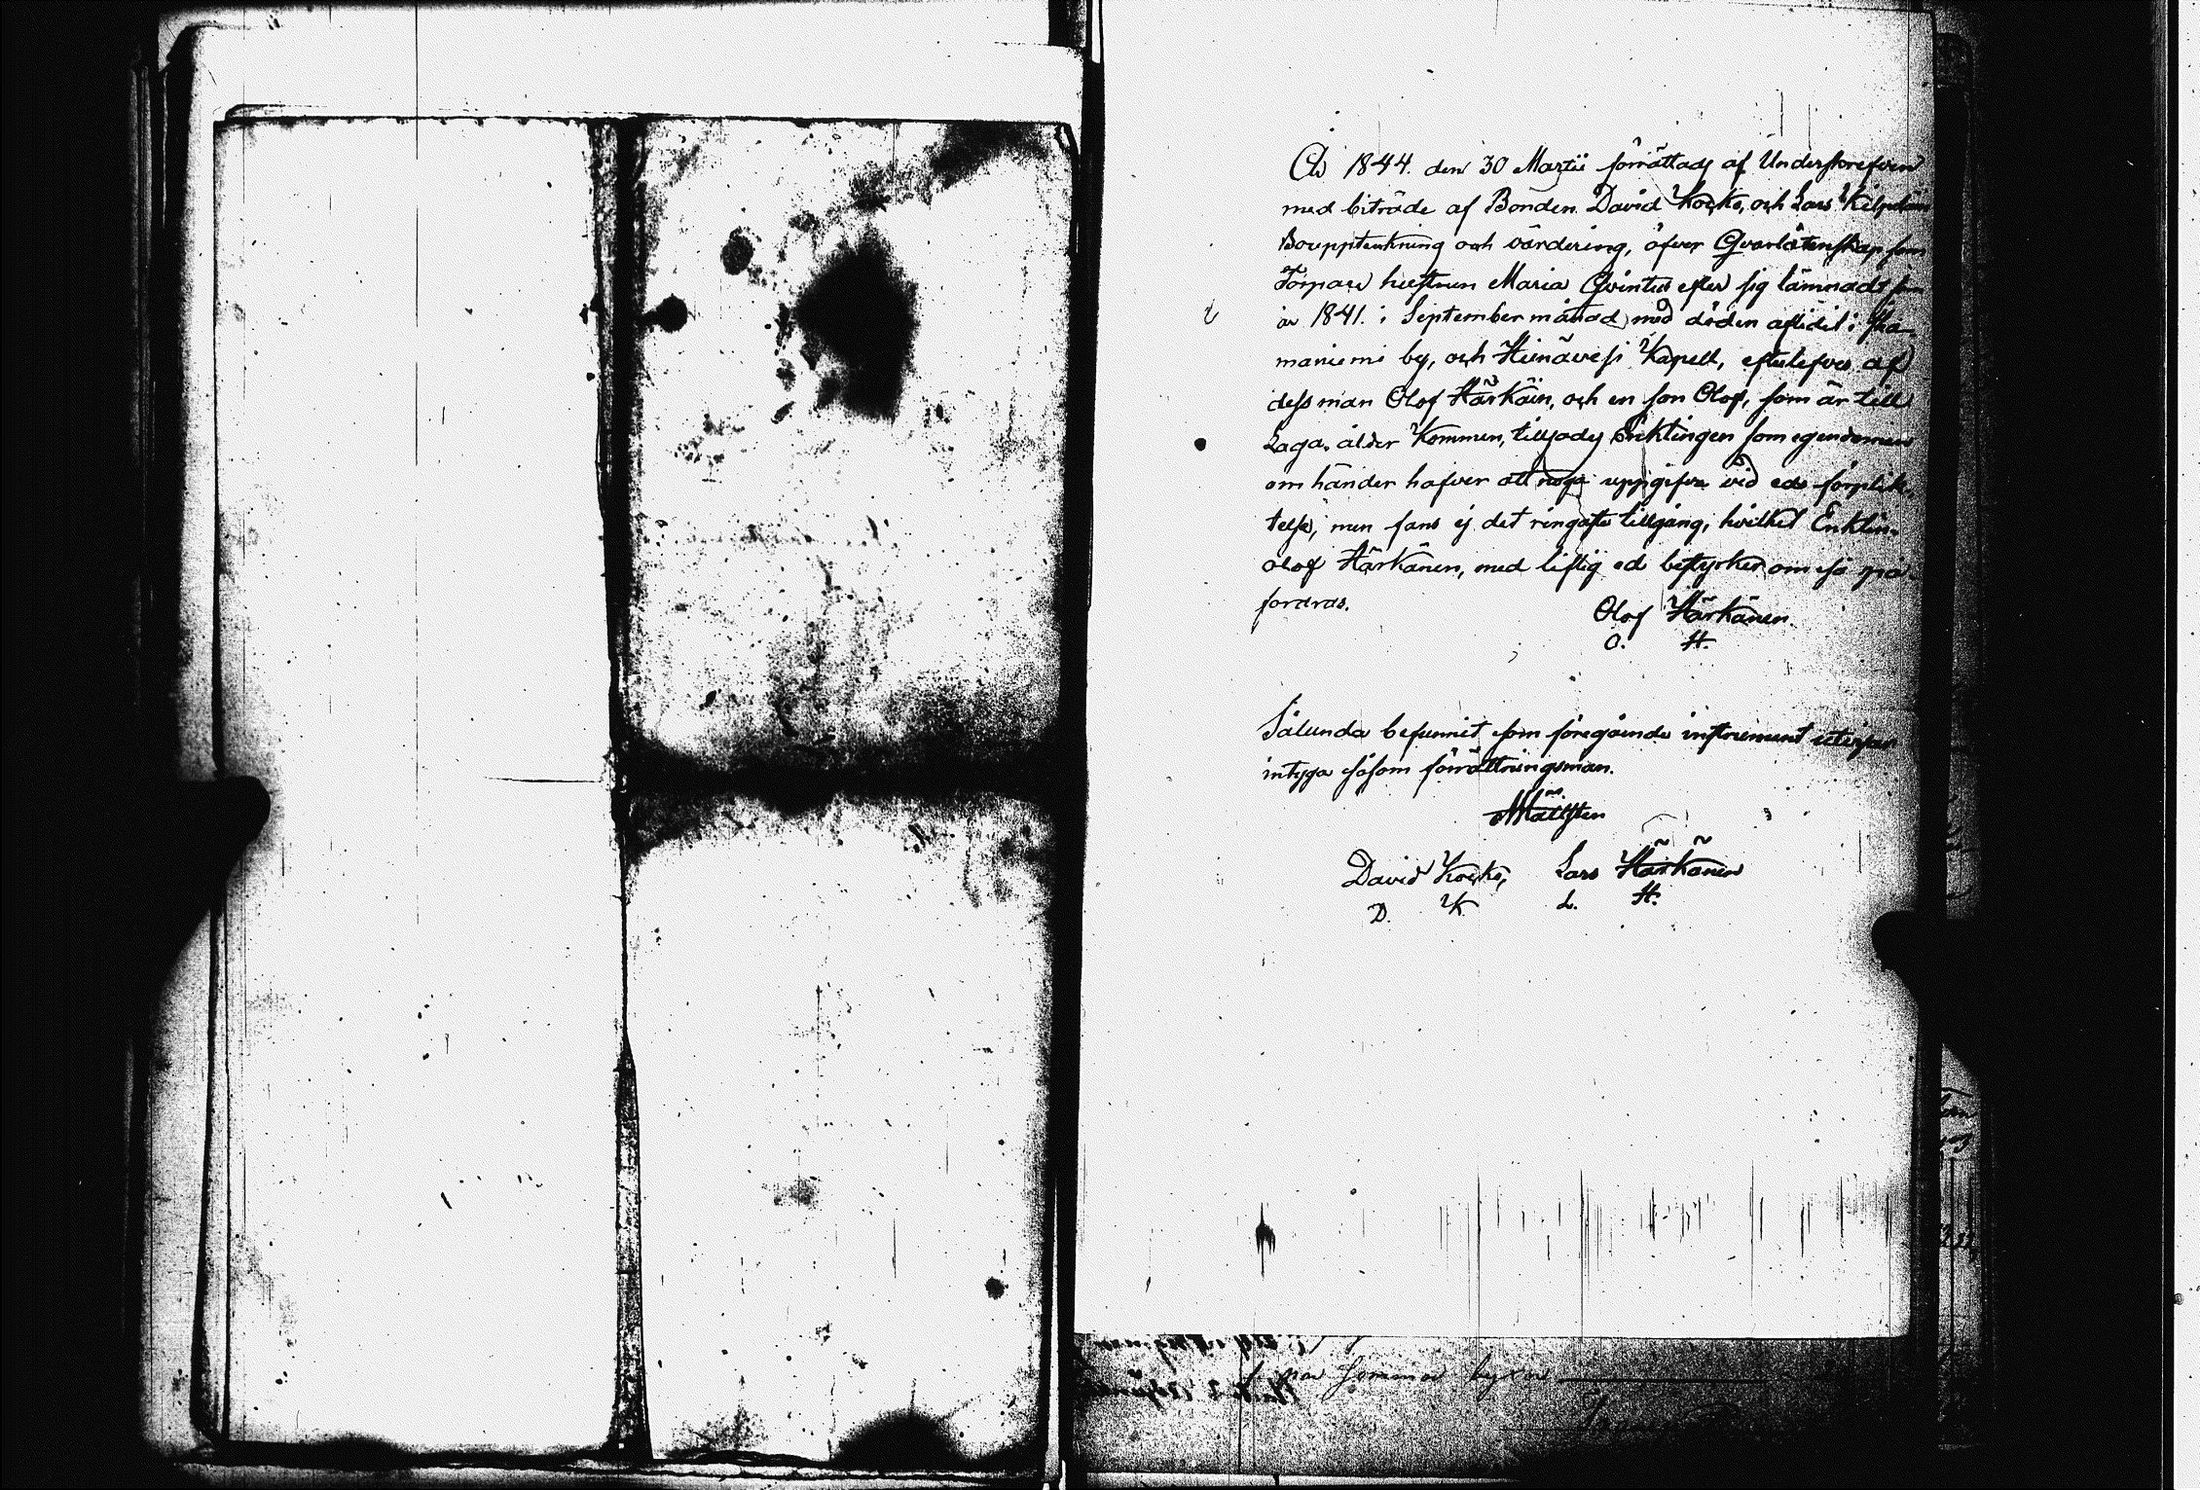 År 1844. den 30 Martii förrättads af Underskrefven
med biträde af Bönden David Kocko, och Lars
Bouppteckning och värdering, öfver Qvarlåtenskap som
Torpare hustrun Maria Qvintus efter sig lämnadt som
år 1841. i September månad med döden aflidit i Ska-
maniemi by, och Heinävesi Kapell, efterlefves af
dess man Olof Härkäin, och en son Olof, som är till
Laga ålder Kommen, tillsades Enklingen som egendomen
om händer hafver att noga uppgifva vid eds förplik-
telse, men fans ej det ringaste tillgång, hvilket Enklin-
Olof Härkänen, med liflig ed bestyrker om så på-
fordras.
Olof Härkänen.
O. H.
Sålunda befunnit som föregående instrument utvisar
intyga såsom förrättningsman.
Mällsten
David Kocko, Lars Härkänen
D. K. L. H.